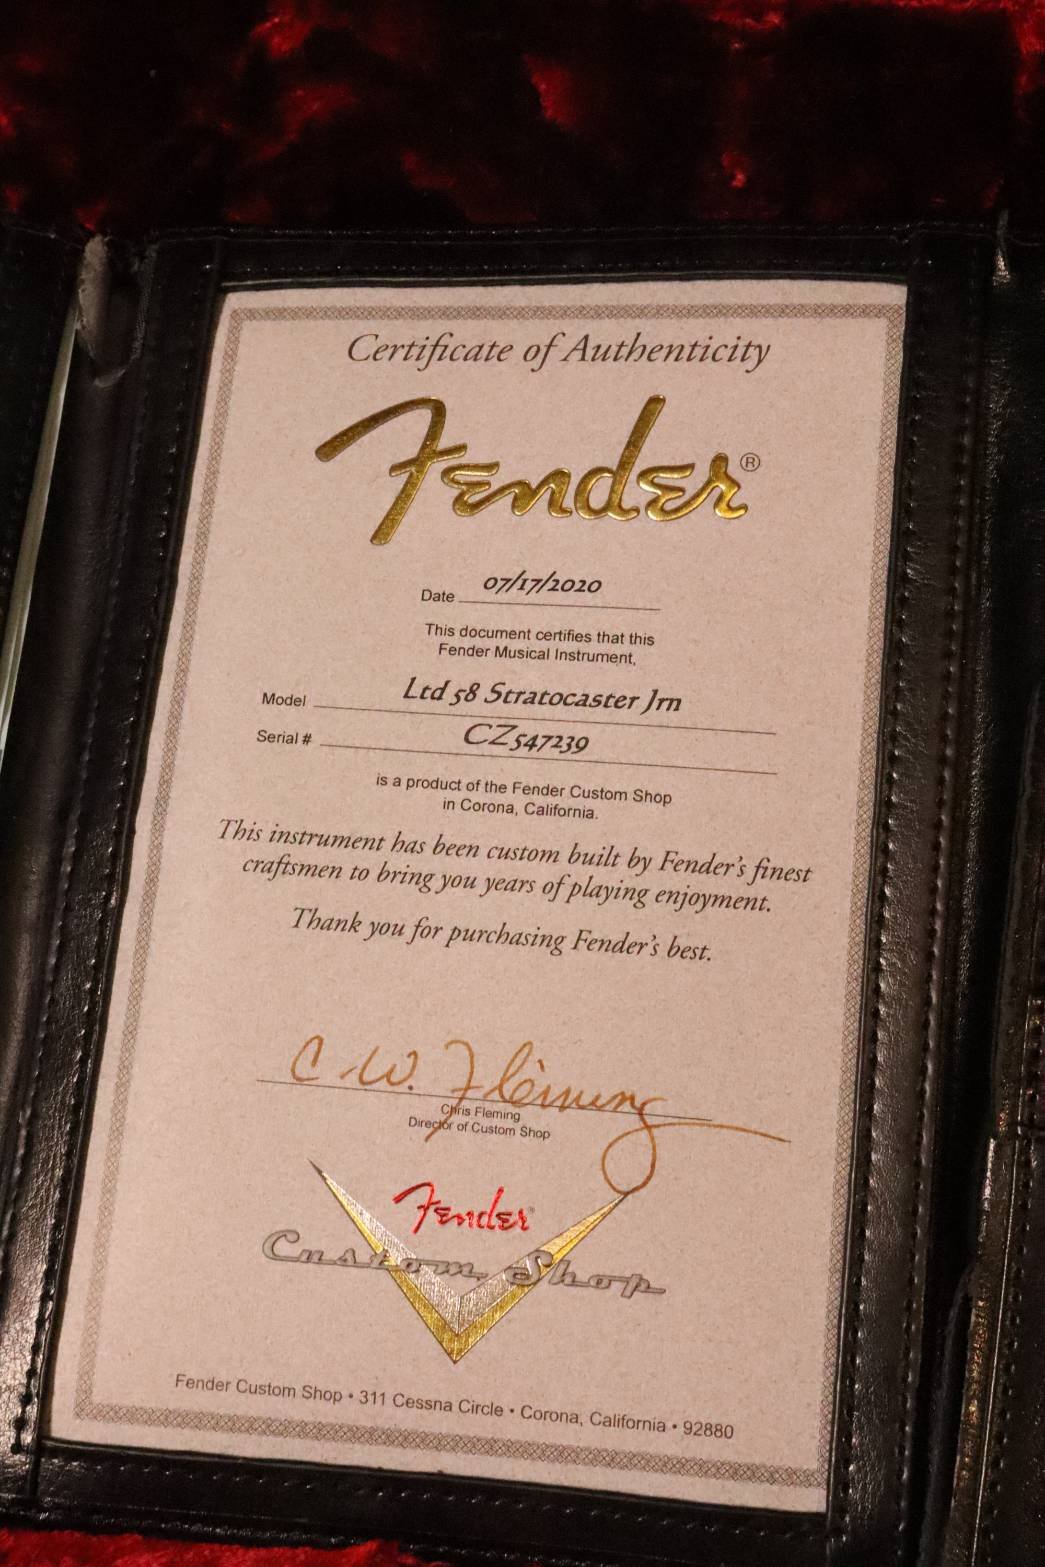 Certificate of Authenticity
Fender®
Date 07/17/2020
This document certifies that this
Fender Musical Instrument,
Model Ltd 58 Stratocaster Jrn
Serial # CZ547239
is a product of the Fender Custom Shop
in Corona, California.
This instrument has been custom built by Fender's finest
craftsmen to bring you years of playing enjoyment.
Thank you for purchasing Fender's best.
C.W. Fleming
Chris Fleming
Director of Custom Shop
Fender
Custom Shop
Fender Custom Shop • 311 Cessna Circle • Corona, California • 92880